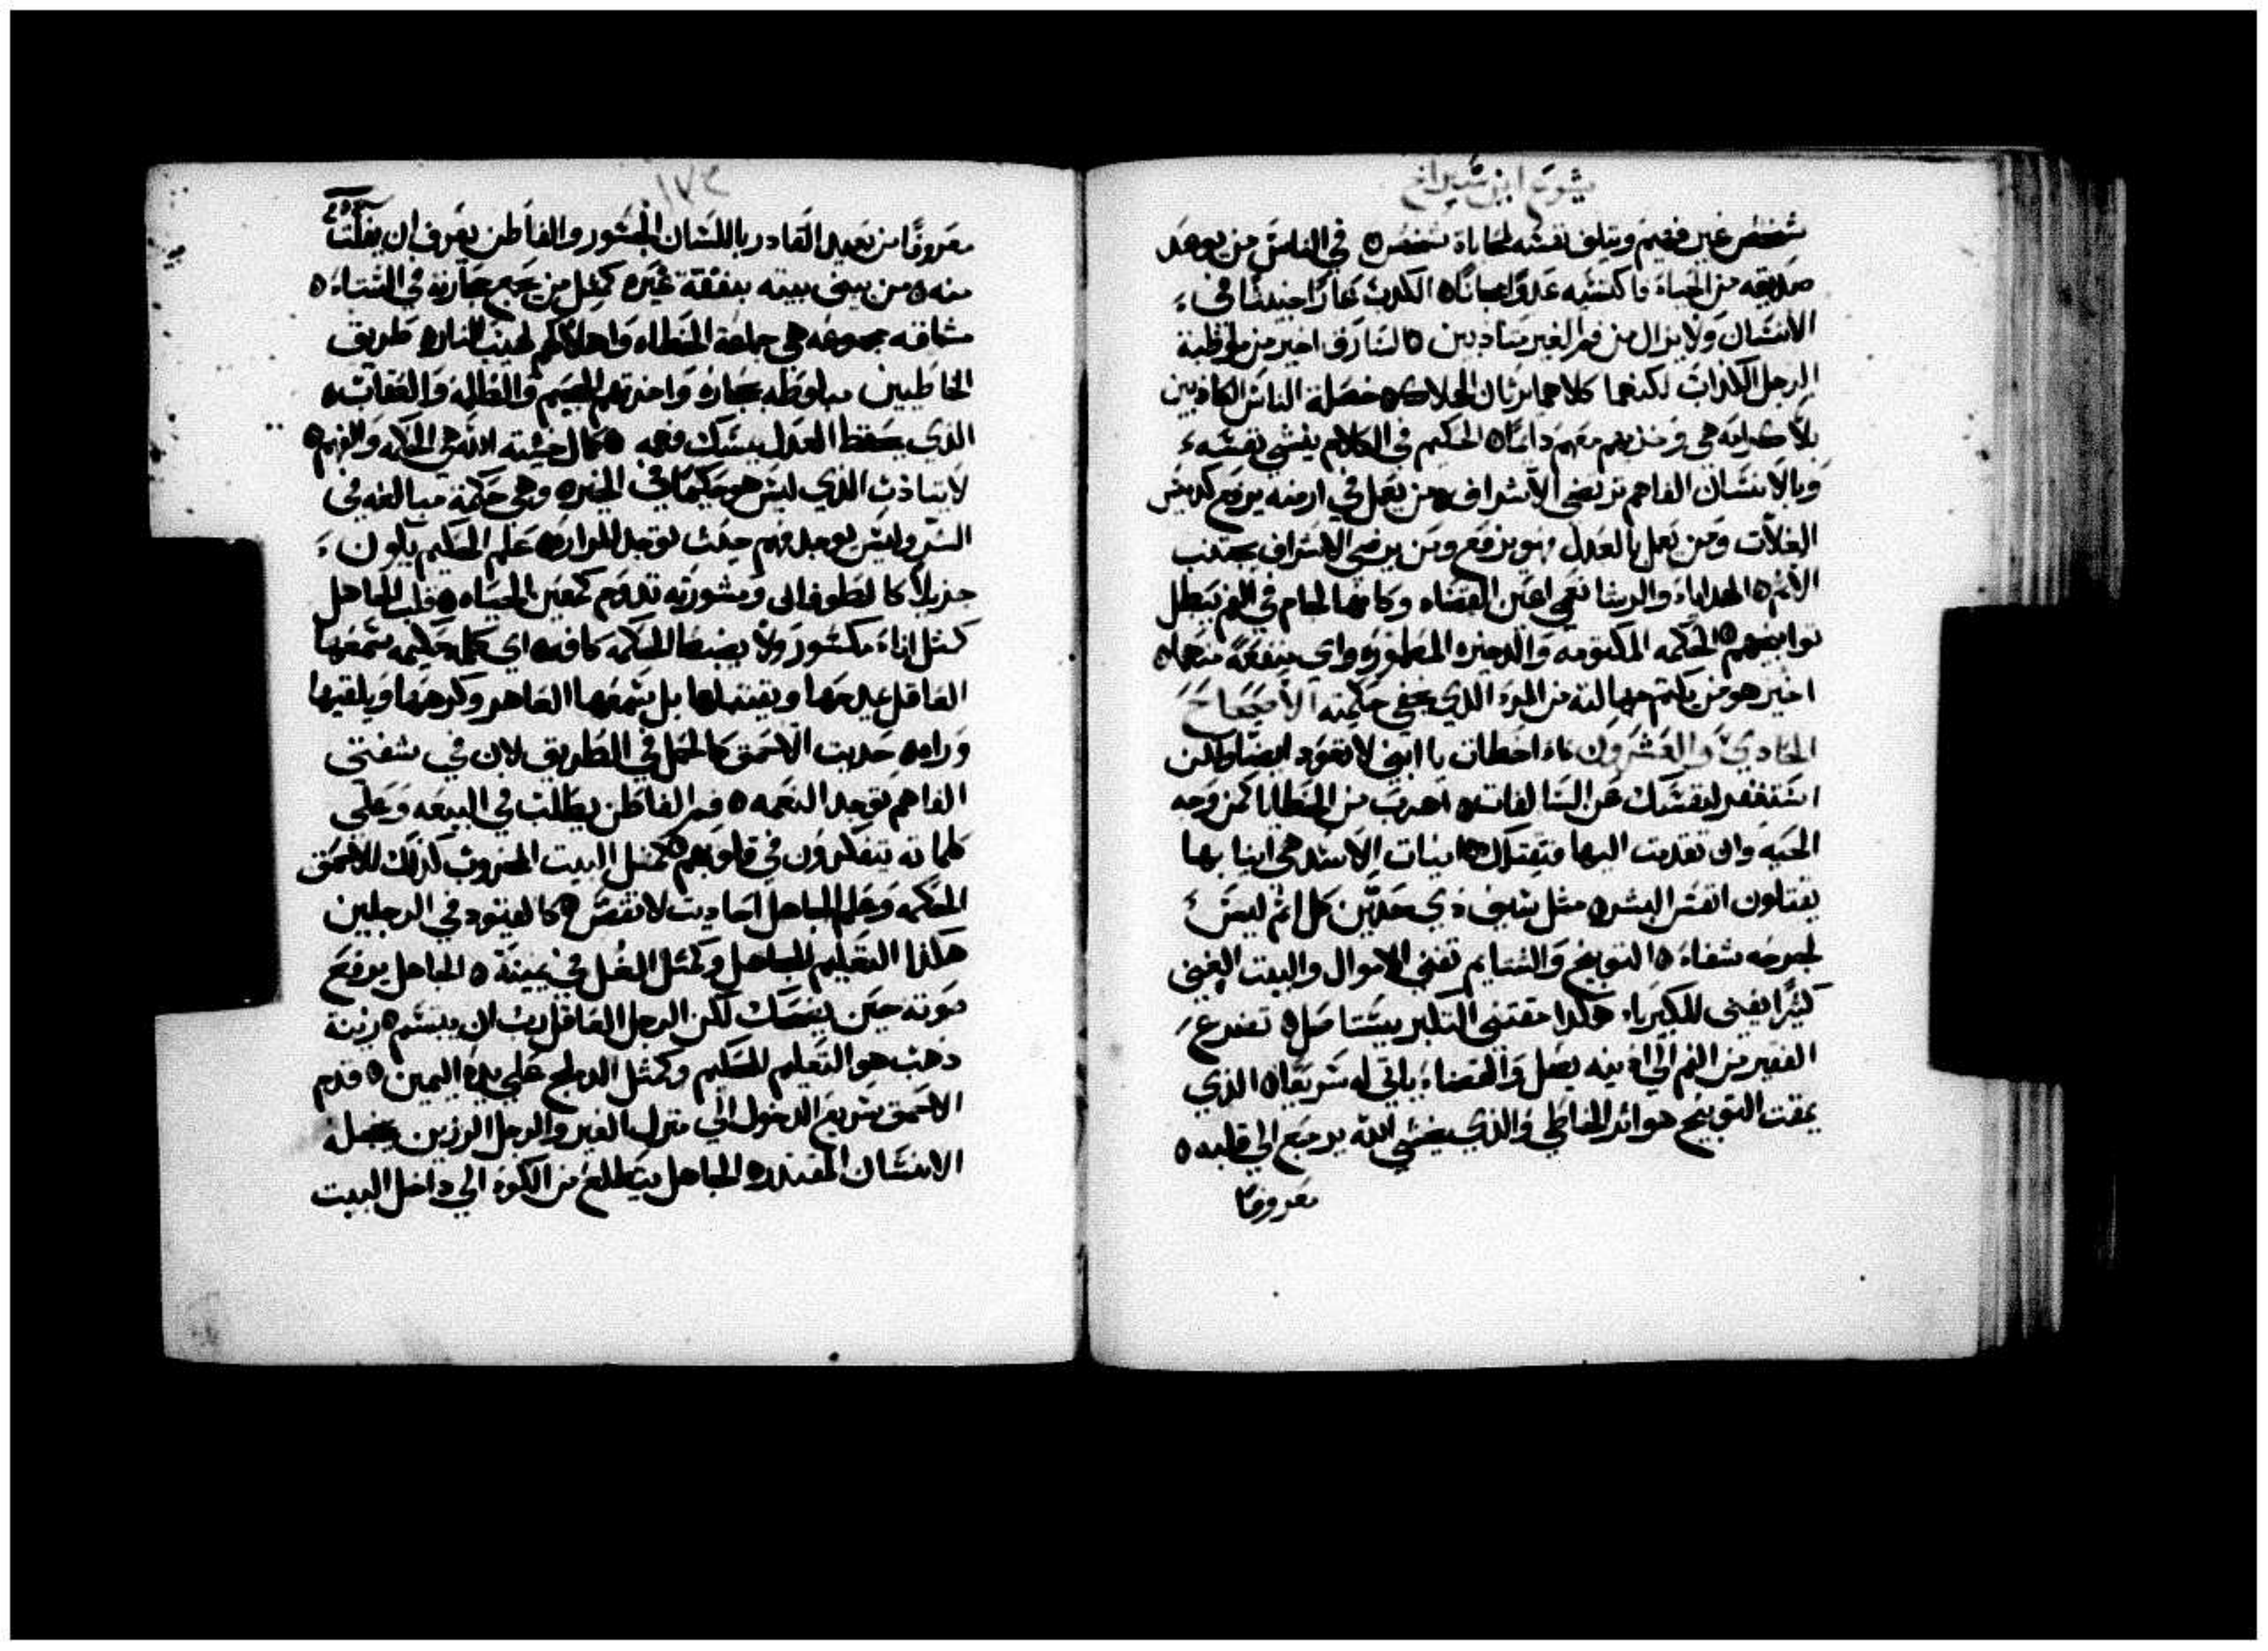 يشوع ابن شيراخ
شخص غير فهيم ويتلف نفسه لمحاباة شخص ه في الناس من يوعد
صديقه من الحياء فاكتسبه عدوًا مجانًا ه الكدب عارًا خبيثًا في
الانسان ولا يزال من فم الغير متادبين ه السارق اخير من مواظبة
الرجل الكداب لكنهما كلاهما يرثان الهلاك ه خصلة الناس الكادبين
بلا كرامه هي وخزيهم معهم دايمًا ه الحكيم في الكلام ينشي نفسه
وبالانسان الفاهم ترتضي الاشراف ه من يعمل في ارضه يرفع كديس
الغلات ومن يعمل بالعدل فهو يرفع ومن يرضي الاشراف يجتنب
الاثم ه الهدايا والرشا تعمي اعين القضاه وكانها لجام في الفم تبطل
توابيخهم ه الحكمه المكتومه والدخيره المطموره واي منفعة منهما ه
اخير هو من يكتم جهالته من المرء الذي يخفي حكمته الاصحاح
الحادي والعشرون ه اخطات يا ابني لا تعود ايضًا ولكن
استغفر لنفسك عن السالفات ه اهرب من الخطايا كمن وجه
الحيه وان تقدمت اليها فتقتلك ه انياب الاسد هي انيابها
يقتلون انفس البشر ه مثل سيف ذي حدين كل اثم ليس
لجرحه شفاء ه التوبيخ والشتايم تفني الاموال والبيت الغني
كثيرًا يفني للكبرياء هكدا مقتني التكبر يستاصل ه تضرع
الفقير من الفم الي ادنيه يصل والقضاء ياتي له سريعًا ه الذي
يمقت التوبيخ هو اثر الخاطي والذي يخشي الله يرجع الي قلبه ه
معروفًا
١٧٤
معروفًا من بعيد القادر باللسان الجسور والفاطن يعرف ان يفلت
منه ه من يبني بيته بنفقة غيره كمثل من يجمع حجارته في الشتاء ه
مشاقه مجموعه هي جماعة الخطاه واهلاكهم لهيب النار ه طريق
الخاطيين مبلوطه بحجاره واخرتهم الجحيم والظلمه والعقاب ه
الذي يحفظ العدل يمسك فهمه ه كمال خشية الله هي الحكمه والفهم ه
لا يتادب الذي ليس هو حكيمًا في الخير ه وهي حكمة مبالغه في
الشر وليس يوجد فهم حيث توجد المراره علم الحكيم يكون
جزيلًا كالطوفان ومشورته تدوم كمعين الحياه ه قلب الجاهل
كمثل اناء مكسور ولا يضبط الحكمه كافه ه اي كلمه حكيمه سمعها
العاقل يمدحها ويقتنيها بل يسمعها العاهر وكرهها ويلقيها
وراه ه حديت الاحمق كالحمل في الطريق لان في شفتي
الفاهم توجد النعمه ه فم الفاطن يطلب في البيعه وعلي
كلماته يتفكرون في قلوبهم ه كمثل البيت الخروب كدلك للاحمق
الحكمه وعلم الجاهل احاديت لا تفسر ه كالقيود في الرجلين
هكذا التعليم للجاهل وكمثل الغل في يمينة ه الجاهل يرفع
صوته حين يضحك لكن الرجل العاقل بان يبتسم ه زينة
ذهب هو التعليم للحكيم وكمثل الدملج علي يده اليمين ه قدم
الاحمق سريع الدخول الي منزل الغير والرجل الرزين يخجله
الانسان المقتدر ه الجاهل يتطلع من الكوة الي داخل البيت